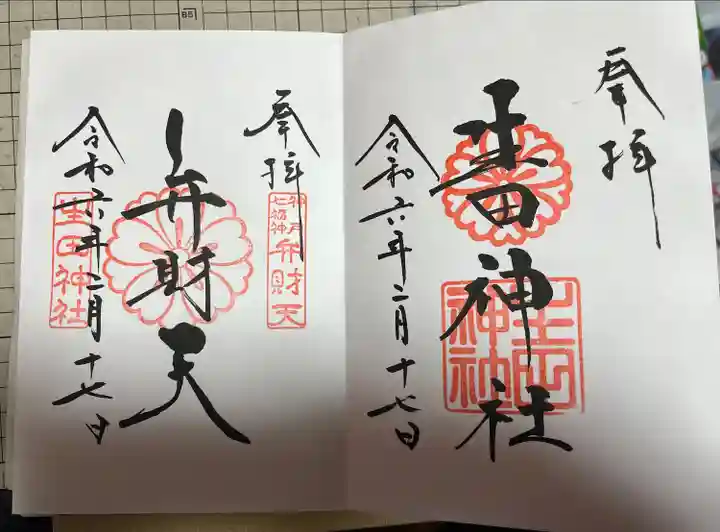 奉拝
生田神社
生田
神社
令和六年二月十七日
奉拝
神戸
七福神
弁財天
弁財天
令和六年二月十七日
生田神社
B5